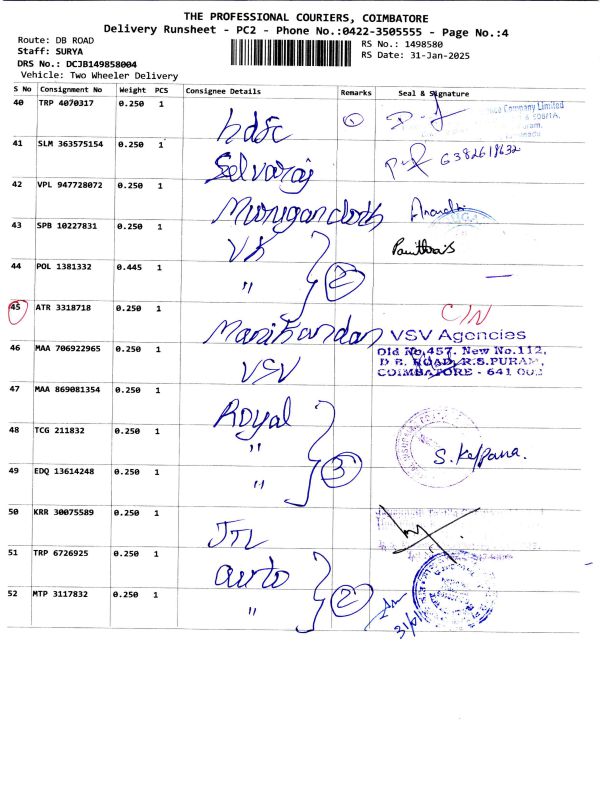 THE PROFESSIONAL COURIERS, COIMBATORE
Delivery Runsheet - PC2 - Phone No.:0422-3505555 - Page No.:4
Route: DB ROAD
RS No.: 1498580
Staff: SURYA
RS Date: 31-Jan-2025
DRS No.: DCJB149858004
Vehicle: Two Wheeler Delivery
S No Consignment No Weight PCS Consignee Details Remarks Seal & Signature
40 TRP 4070317 0.250 1 hdfc 1
Company Limited
41 SLM 363575154 0.250 1 Selvaraj 6382619632
42 VPL 947728072 0.250 1 Murugan cloth
43 SPB 10227831 0.250 1 VK
44 POL 1381332 0.445 1 " 2
45 ATR 3318718 0.250 1 Manikandan C/N
46 MAA 706922965 0.250 1 VSV
VSV Agencies
Old No,457. New No.112,
D B. ROAD, R.S.PURAM,
COIMBATORE - 641 002
47 MAA 869081354 0.250 1 Royal
48 TCG 211832 0.250 1 " 3 S. Kalpana.
49 EDQ 13614248 0.250 1 "
50 KRR 30075589 0.250 1 JTL
51 TRP 6726925 0.250 1 auto
52 MTP 3117832 0.250 1 " 2
31/01